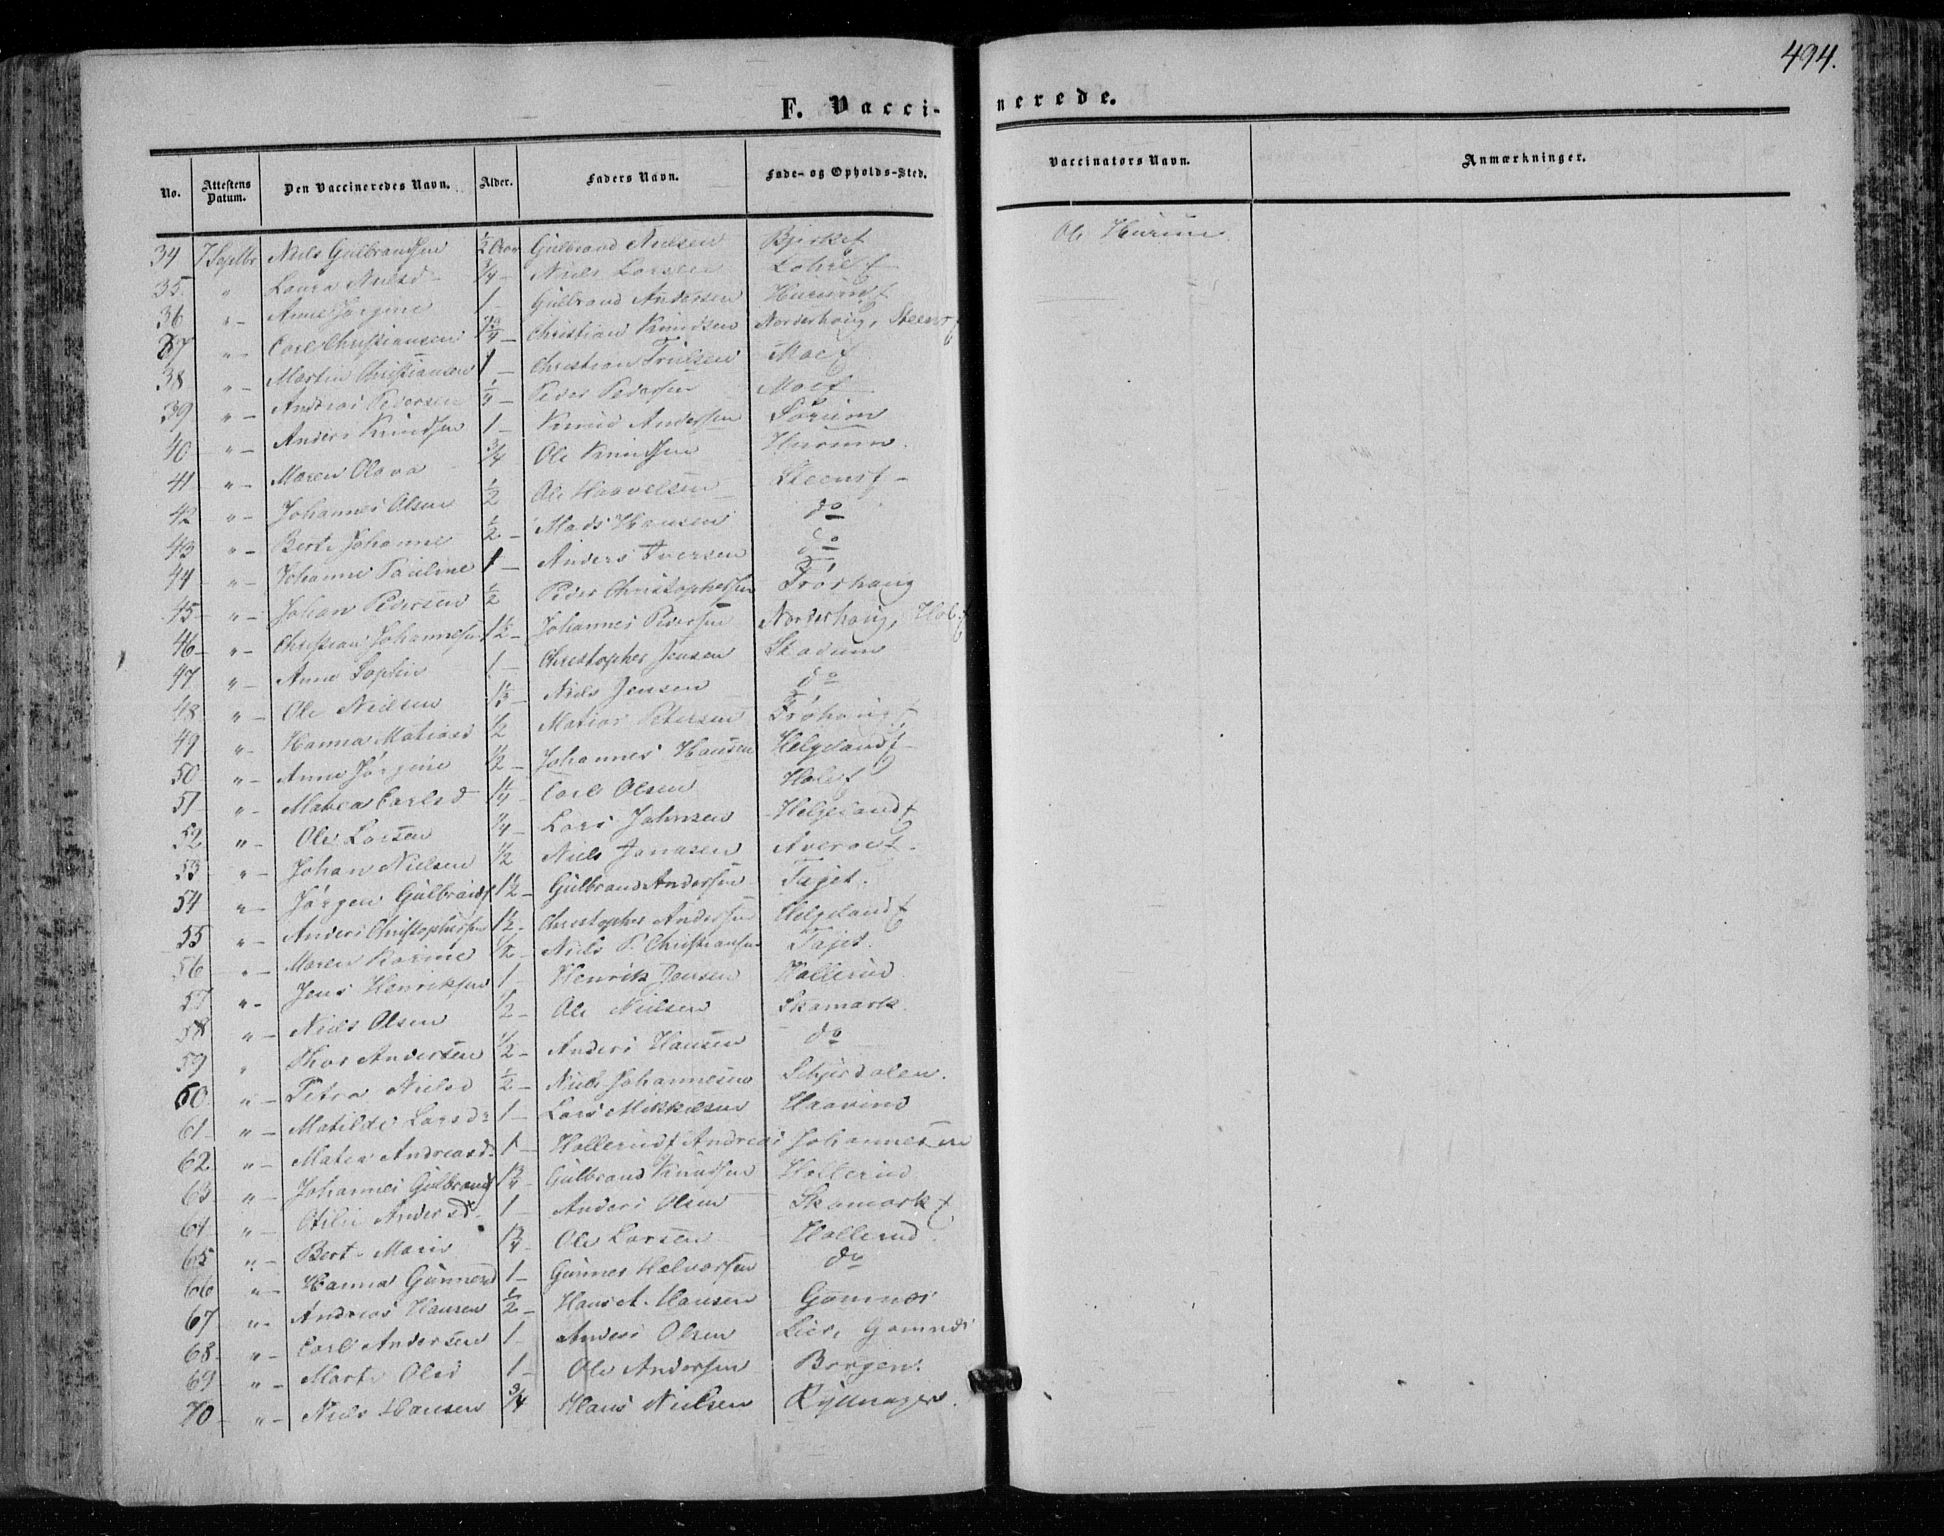 494.
F. Vaccinerede.
No. Attestens Datum. Den Vaccineredes Navn. Alder. Faders Navn. Føde- og Opholds-Sted. Vaccinators Navn. Anmærkninger.
34 7 Septbr Niels Gulbrandsen 1/2 Aar Gulbrand Nielsen Bjerkef Ole Hurum
35 " Laura Nielsd 3/4 - Niels Larsen
36 " - Anne Jørgine 1 - Gulbrand Andersen Hurumf
37 " - Carl Christiansen Christian Knudsen Norderhoug, Steensf
38 " - Martin Christiansen 1 - Christian Trulsen Moef
39 " - Andreas Pedersen Peder Pedersen Moef
40 " - Anders Knudsen 1 - Knud Andersen Sørum
41 " - Maren Olava 3/4 Ole Knudsen Hurum
42 " - Johannes Olsen 1/2 Ole Haavelsen Steensf -
43 " - Berte Johanne 1/2 - Mads Hansen do
44 " - Johanne Pauline 1 - Anders Iversen do
45 " - Johan Pedersen 1/2 Peder Christophersen Frøshaug
46 " - Christian Johannesen 1 1/2 - Johannes Pedersen Norderhoug, Holef
47 " - Anne Sophie 1 - Christopher Jensen Skadum
48 " - Ole Nielsen 1 1/3 - Niels Jensen do
49 " - Hanna Matiasd 1/2 Matias Petersen
50 " - Anne Jørgine 1/2 - Johannes Hansen Helgelandf
51 " - Matea Carlsd 1 1/4 - Carl Olsen Holef
52 " - Ole Larsen Lars Johnsen Helgelandf
53 " - Johan Nielsen 1/2 Niels Jonasen
54 " - Jørgen Gulbrands 1 1/2 - Gulbrand Andersen Fajet.
55 " - Anders Christophersen 1 1/2 - Christopher Andersen Helgelandf
56 " - Maren Karine 1/2 - Niels P. Christiansen Fajet.
57 " - Jens Henriksen 1 - Henrik Jensen Hollerud
58 " - Niels Olsen 1/2 - Ole Nielsen Skamark.
59 " Thor Andersen 1/2 - Anders Hansen do
60 " - Petra Nielsd 1/2 - Niels Johannesen
61 " - Matilde Larsdr 1 - Lars Mikkelsen Haavind
62 " - Matea Andreasd. 1 - Hollerudf Andreas Johannesen
63 " - Johannes Gulbrands Gulbrand Knudsen Hollerud
64 " - Otilie Andersd 1 - Anders Olsen Skamarkf
65 " - Bert. Marie Ole Larsen Hollerud.
66 " - Hanna Gunnersd 1 - Gunner Halvorsen do
67 " - Andreas Hansen 1/2 - Hans A. Hansen Gomnæs
68 " - Carl Andersen 1 - Anders Olsen Lier, Gomnæs
69 " - Marte Olsd 1 - Ole Andersen Borgen.
70 " - Niels Hansen 3/4 Hans Nielsen Rytterager.